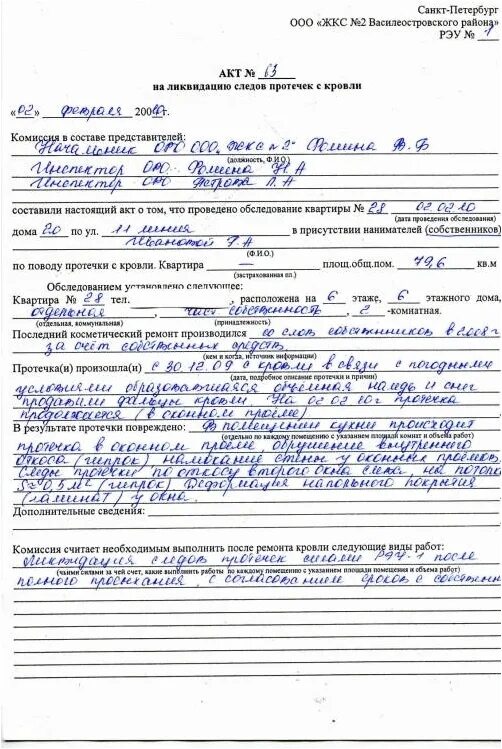 Санкт-Петербург
ООО «ЖКС №2 Василеостровского района»
РЭУ № 1
АКТ № 63
на ликвидацию следов протечек с кровли
«02» февраля 20010г.
Комиссия в составе представителей:
Начальник ОРО ООО „ЖКС №2" Фомина В.Ф
(должность, Ф.И.О.)
Инспектор ОРО Фомина Н.А
Инспектор ОРО Петрова Л.А
составили настоящий акт о том, что проведено обследование квартиры № 28 02.02.10
(дата проведения обследования)
дома 20 по ул. 11 линия в присутствии нанимателей (собственников)
Ивановой Г.А
(Ф.И.О.)
по поводу протечки с кровли. Квартира — площ.общ.пом. 79,6 кв.м
(застрахованная пл.)
Обследованием установлено следующее:
Квартира № 28 тел. , расположена на 6 этаже, 6 этажного дома,
отдельная , част. собственность, 2 -комнатная.
(отдельная, коммунальная) (принадлежность)
Последний косметический ремонт производился со слов собственников в 2008г
за счёт собственных средств
(кем и когда, источник информации)
Протечка(и) произошла(и) с 30.12.09 с кровли в связи с погодными
(дата, подробное описание протечки и причин)
условиями образовавшаяся объёмная наледь и снег
кровли. На 02.02.10г протечка
продолжается (в оконном проёме)
В результате протечки повреждено: В помещении кухни происходит
(отдельно по каждому помещению с указанием площадей комнат и объема работ)
протечка в оконном проёме обрушение внутреннего
откоса (гипрок) намокание стены у оконных проёмов.
Следы протечки по откосу второго окна слева на потолке
S≈0,5м² (гипрок) Деформация напольного покрытия
(ламинат) у окна.
Дополнительные сведения:
Комиссия считает необходимым выполнить после ремонта кровли следующие виды работ:
Ликвидация следов протечек силами РЭУ-1 после
(чьими силами за чей счет, какие выполнить работы по каждому помещению с указанием площади помещения и объема работ)
полного просыхания, с согласованием сроков с собственн